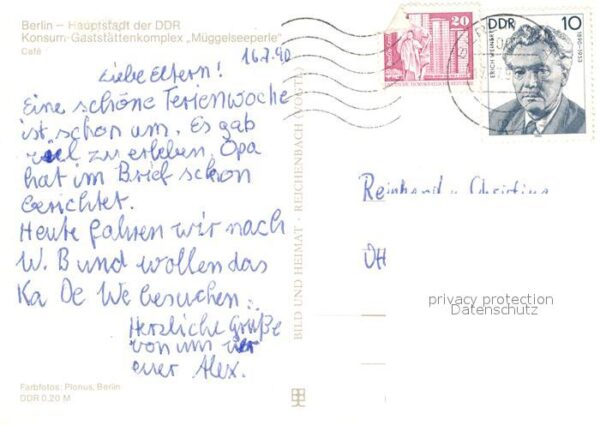 Berlin — Hauptstadt der DDR
Konsum-Gaststättenkomplex „Müggelseeperle"
Café
16.7.90
Liebe Eltern!
Eine schöne Ferienwoche
ist schon um. Es gab
viel zu erleben, Opa
hat im Brief schon
berichtet.
Heute fahren wir nach
W. B und wollen das
Ka De We besuchen.
Herzliche Grüße
von
euer Alex.
Farbfotos: Plonus, Berlin
DDR 0,20 M
BILD UND HEIMAT · REICHENBACH (VOGTL)
20
DDR 10
ERICH WEINERT
1890-1953
Reinhard u. Christina
privacy protection
Datenschutz